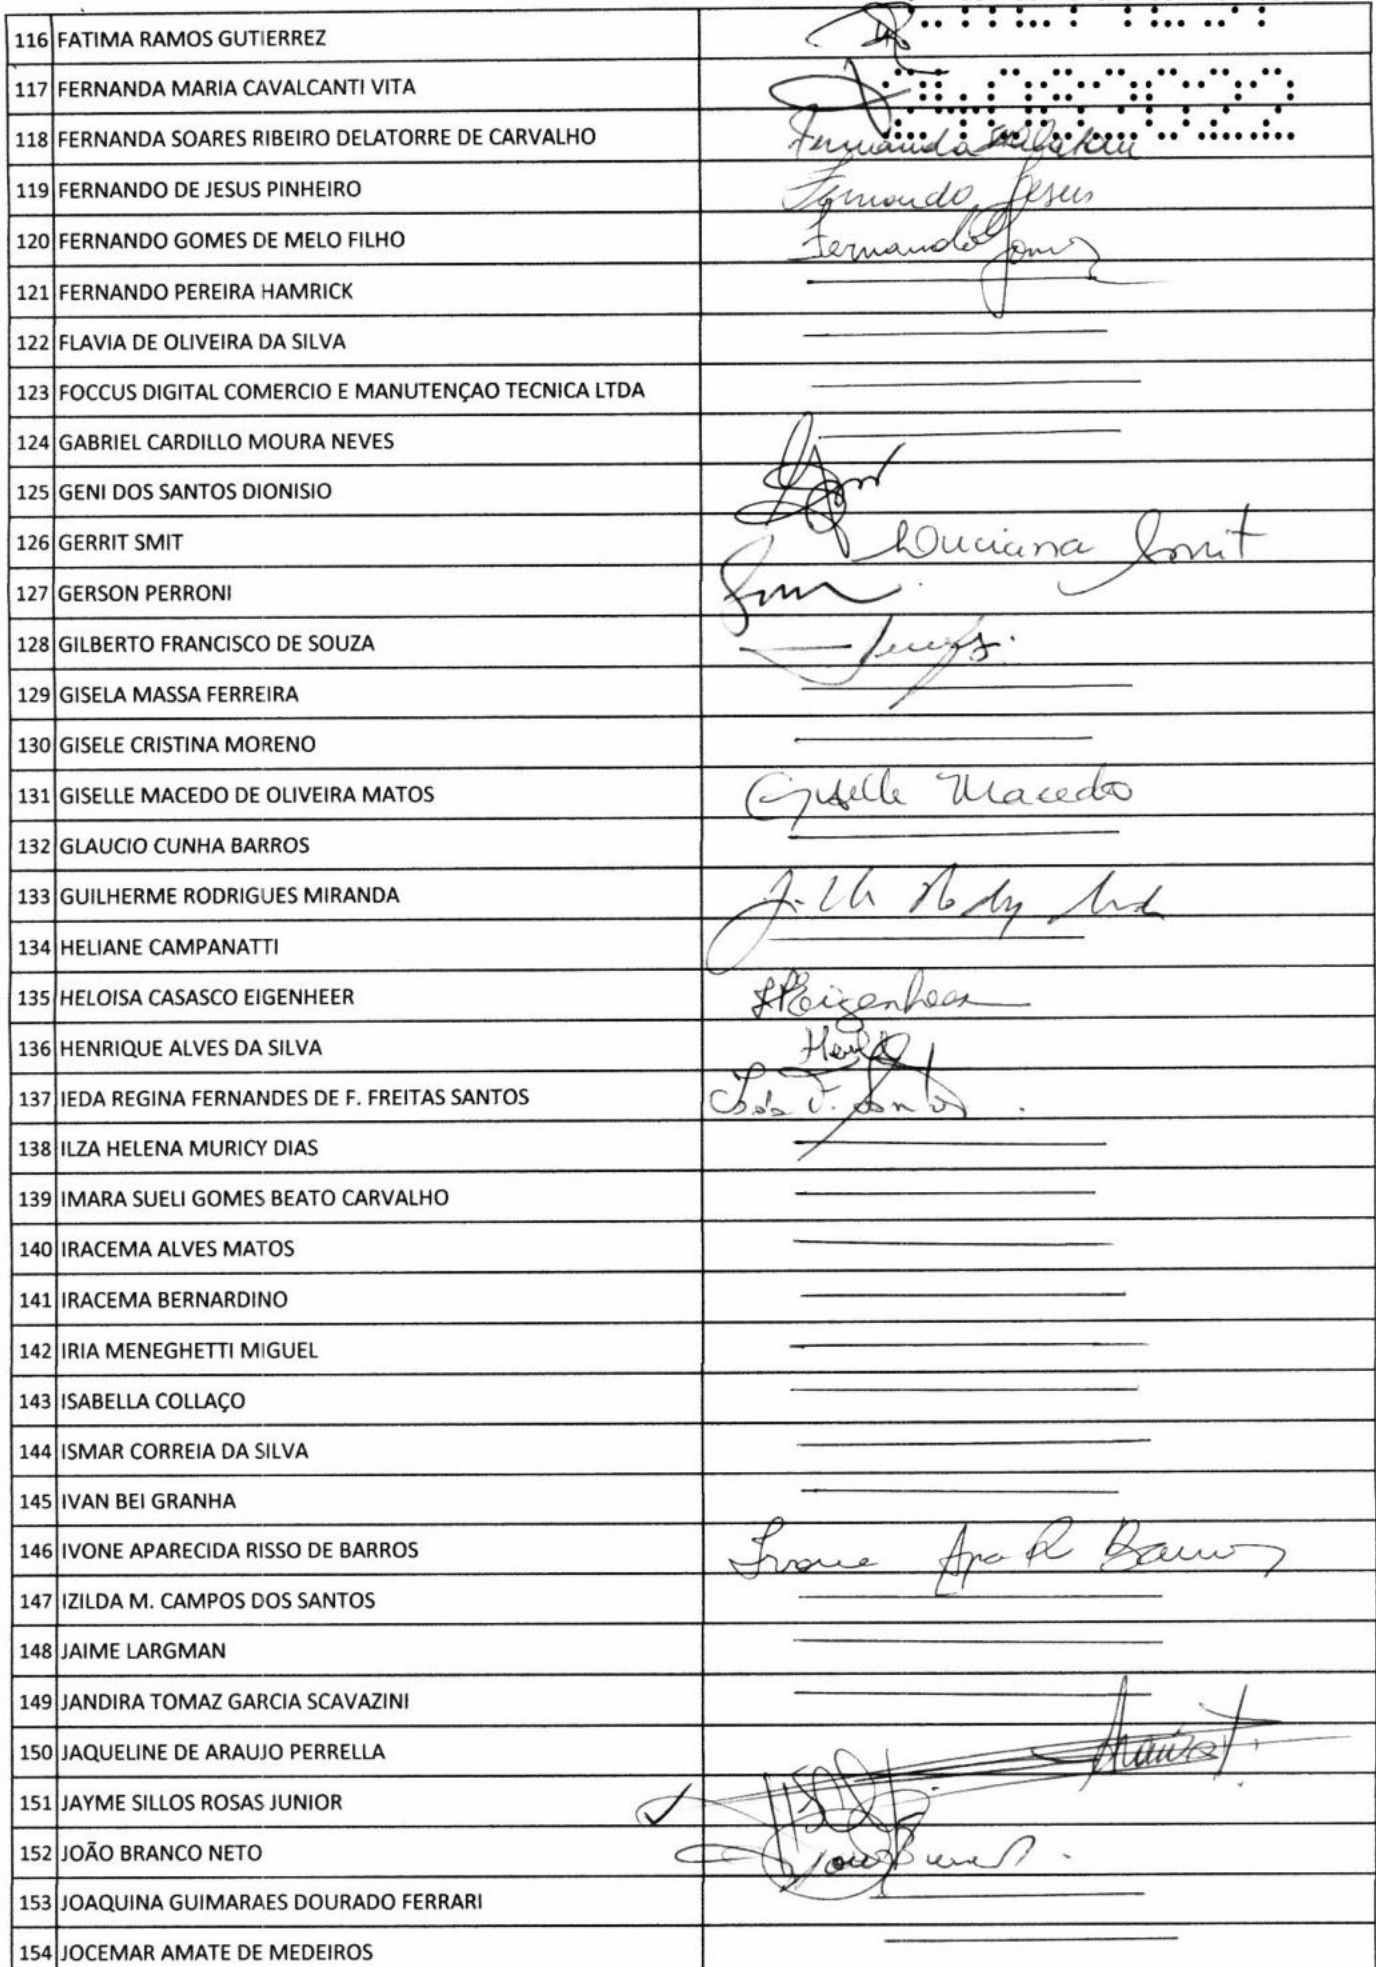 116 FATIMA RAMOS GUTIERREZ
117 FERNANDA MARIA CAVALCANTI VITA
24082022
118 FERNANDA SOARES RIBEIRO DELATORRE DE CARVALHO Fernanda
119 FERNANDO DE JESUS PINHEIRO Fernando Jesus
120 FERNANDO GOMES DE MELO FILHO Fernando Gomes
121 FERNANDO PEREIRA HAMRICK
122 FLAVIA DE OLIVEIRA DA SILVA
123 FOCCUS DIGITAL COMERCIO E MANUTENÇAO TECNICA LTDA
124 GABRIEL CARDILLO MOURA NEVES
125 GENI DOS SANTOS DIONISIO
126 GERRIT SMIT Luciana Smit
127 GERSON PERRONI
128 GILBERTO FRANCISCO DE SOUZA
129 GISELA MASSA FERREIRA
130 GISELE CRISTINA MORENO
131 GISELLE MACEDO DE OLIVEIRA MATOS Giselle Macedo
132 GLAUCIO CUNHA BARROS
133 GUILHERME RODRIGUES MIRANDA
134 HELIANE CAMPANATTI
135 HELOISA CASASCO EIGENHEER HEigenheer
136 HENRIQUE ALVES DA SILVA
137 IEDA REGINA FERNANDES DE F. FREITAS SANTOS
138 ILZA HELENA MURICY DIAS
139 IMARA SUELI GOMES BEATO CARVALHO
140 IRACEMA ALVES MATOS
141 IRACEMA BERNARDINO
142 IRIA MENEGHETTI MIGUEL
143 ISABELLA COLLAÇO
144 ISMAR CORREIA DA SILVA
145 IVAN BEI GRANHA
146 IVONE APARECIDA RISSO DE BARROS Ivone Apa R Barros
147 IZILDA M. CAMPOS DOS SANTOS
148 JAIME LARGMAN
149 JANDIRA TOMAZ GARCIA SCAVAZINI
150 JAQUELINE DE ARAUJO PERRELLA
151 JAYME SILLOS ROSAS JUNIOR
152 JOÃO BRANCO NETO
153 JOAQUINA GUIMARAES DOURADO FERRARI
154 JOCEMAR AMATE DE MEDEIROS